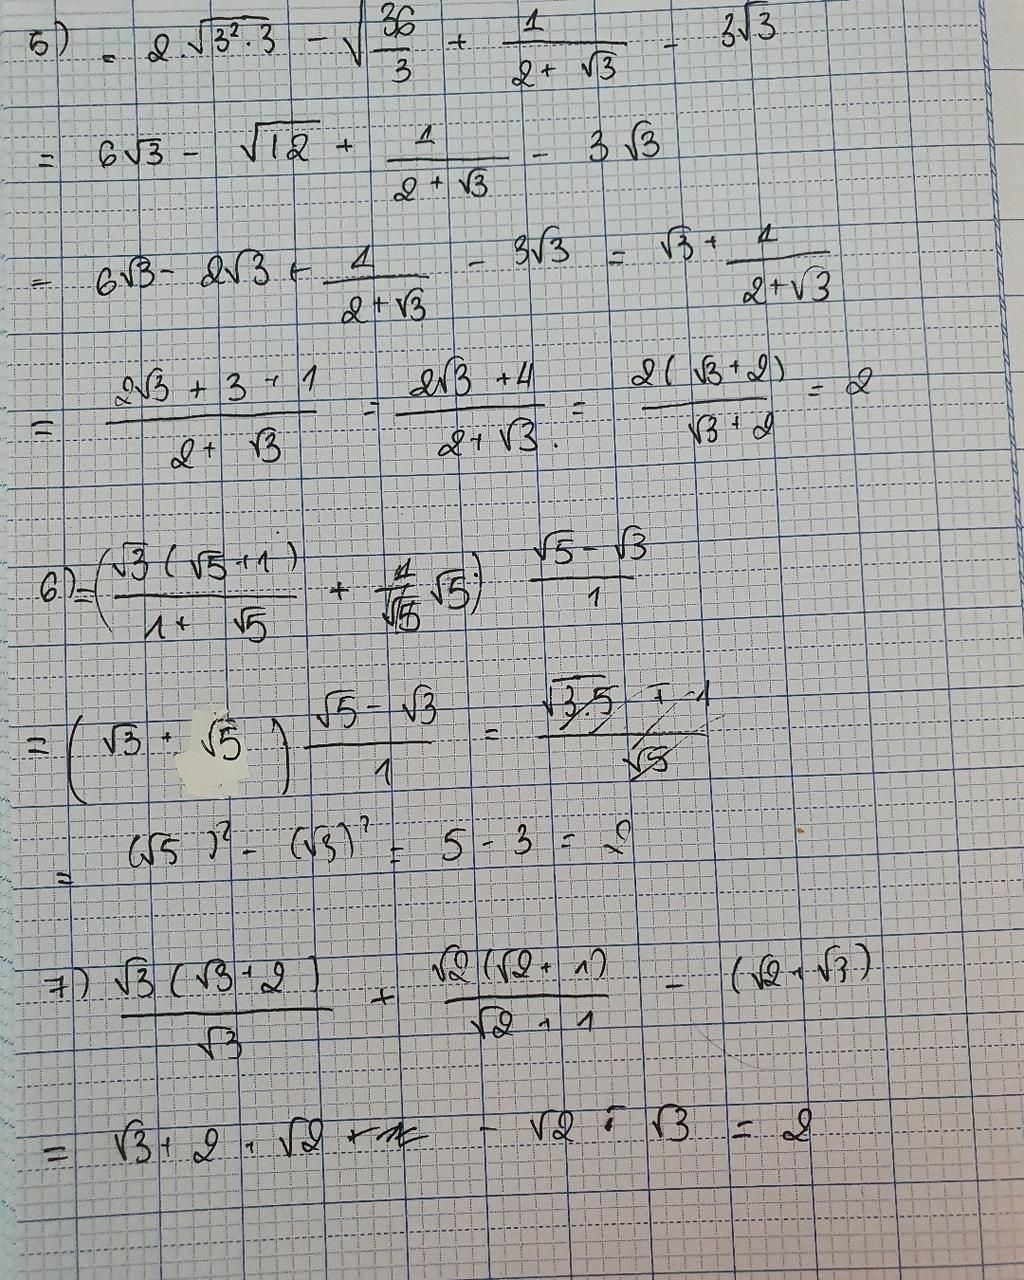 5) = 2.√(3².3) - √(36/3) + 1/(2 + √3) - 3√3
= 6√3 - √12 + 1/(2 + √3) - 3√3
= 6√3 - 2√3 + 1/(2 + √3) - 3√3 = √3 + 1/(2 + √3)
= (2√3 + 3 + 1)/(2 + √3) = (2√3 + 4)/(2 + √3) = 2(√3 + 2)/(√3 + 2) = 2
6) = (√3(√5 + 1)/(1 + √5) + 1/√5 √5) . (√5 - √3)/1
= (√3 + √5) (√5 - √3)/1 =
= (√5)² - (√3)² = 5 - 3 = 2
7) √3(√3 + 2)/√3 + √2(√2 + 1)/(√2 + 1) - (√2 + √3)
= √3 + 2 + √2 - √2 - √3 = 2